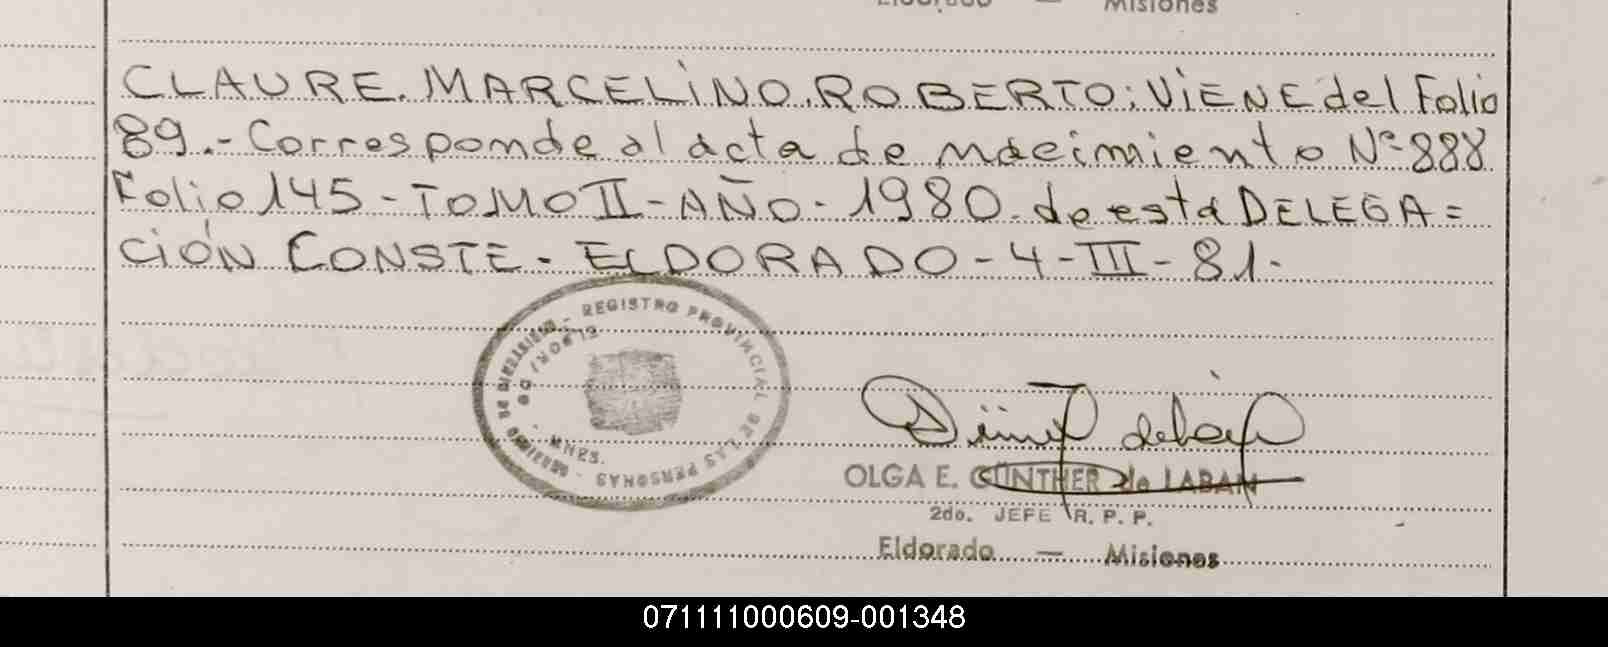 Eldorado — Misiones
CLAURE. MARCELINO. ROBERTO: ViENE del Folio
89.- Corresponde al acta de nacimiento Nº 888
Folio 145 - TOMO II - AÑO - 1980. de esta DELEGA=
CIÓN CONSTE - ELDORADO - 4 - III - 81.
REGISTRO PROVINCIAL DE LAS PERSONAS
ELDORADO
MNES.
OLGA E. GÜNTHER de LABAN
2do. JEFE R. P. P.
Eldorado — Misiones
071111000609-001348